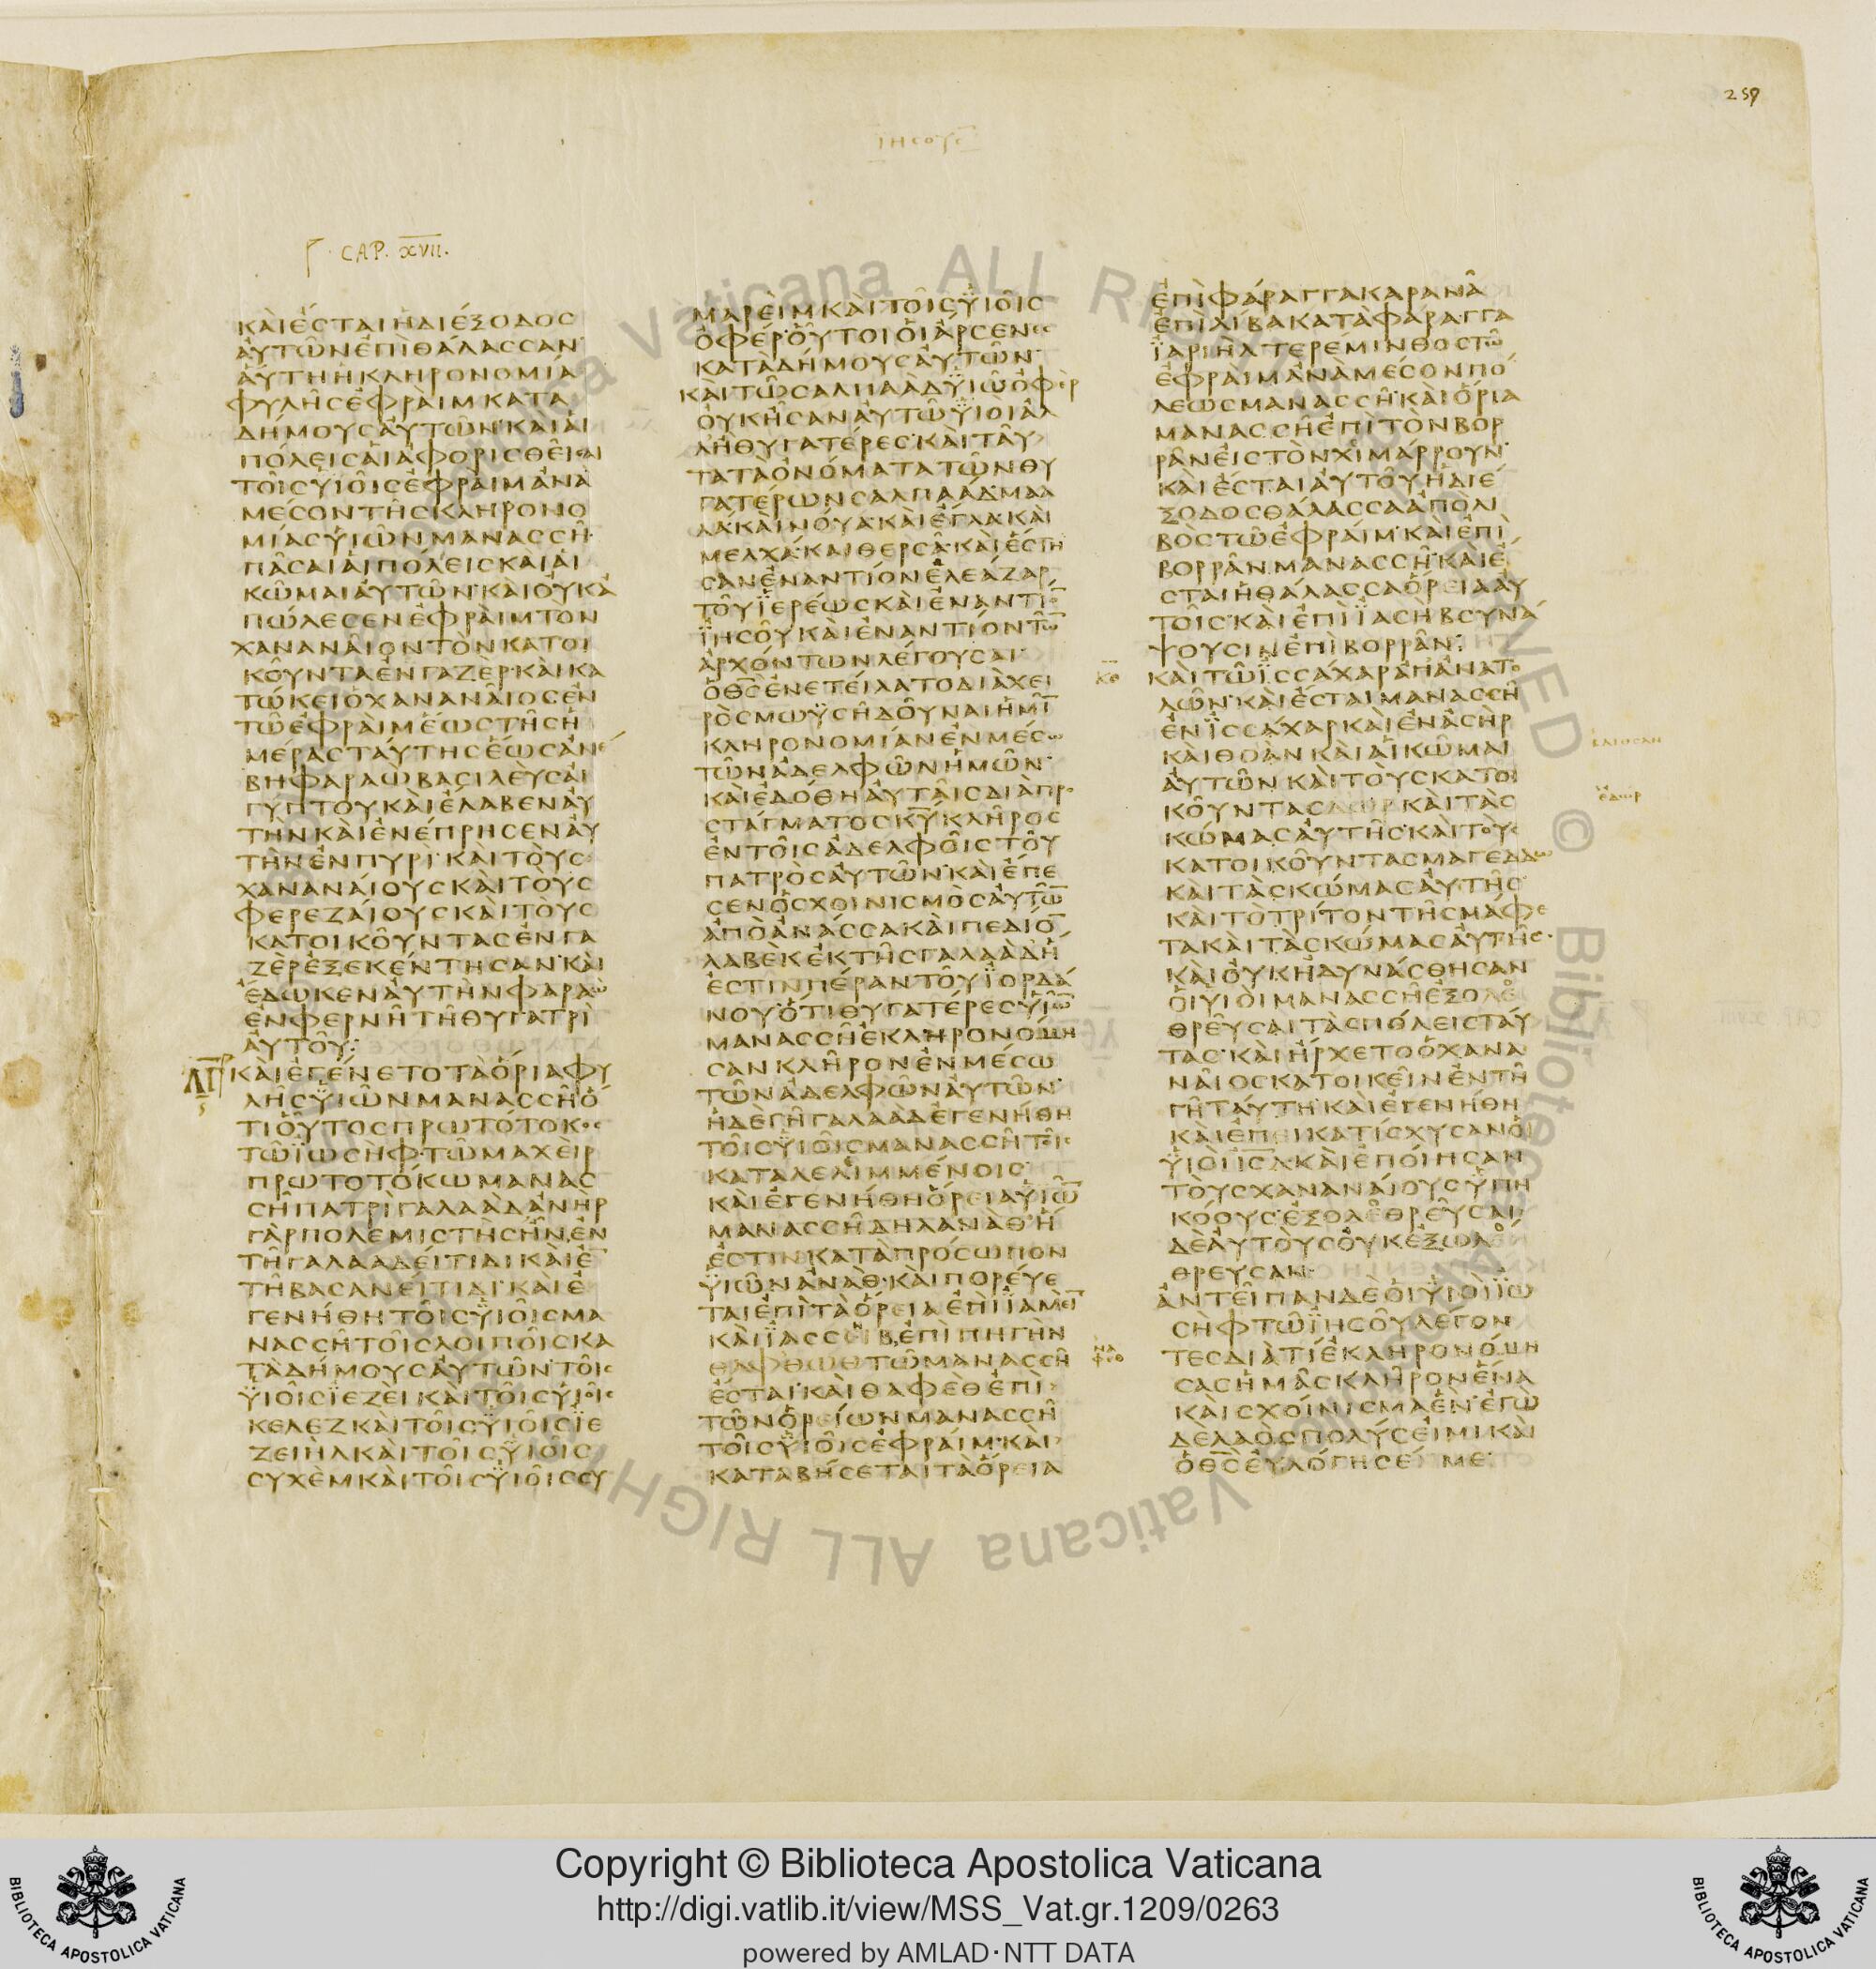 259
ΙΗϹΟΥϹ
CAP. XVII.
ΚΑΙΕϹΤΑΙΗΔΙΕΞΟΔΟϹ
ΑΥΤΩΝΕΠΙΘΑΛΑϹϹΑΝ
ΑΥΤΗΗΚΛΗΡΟΝΟΜΙΑ
ΦΥΛΗϹΕΦΡΑΙΜΚΑΤΑ
ΔΗΜΟΥϹΑΥΤΩΝ·ΚΑΙΑΙ
ΠΟΛΕΙϹΑΙΑΦΟΡΙϹΘΕΙϹΑΙ
ΤΟΙϹΥΙΟΙϹΕΦΡΑΙΜΑΝΑ
ΜΕϹΟΝΤΗϹΚΛΗΡΟΝΟ
ΜΙΑϹΥΙΩΝΜΑΝΑϹϹΗ·
ΠΑϹΑΙΑΙΠΟΛΕΙϹΚΑΙΑΙ
ΚΩΜΑΙΑΥΤΩΝ·ΚΑΙΟΥΚΑ
ΠΩΛΕϹΕΝΕΦΡΑΙΜΤΟΝ
ΧΑΝΑΝΑΙΟΝΤΟΝΚΑΤΟΙ
ΚΟΥΝΤΑΕΝΓΑΖΕΡ·ΚΑΙΚΑ
ΤΩΚΕΙΟΧΑΝΑΝΑΙΟϹΕΝ
ΤΩΕΦΡΑΙΜΕΩϹΤΗϹΗ
ΜΕΡΑϹΤΑΥΤΗϹΕΩϹΑΝΕ
ΒΗΦΑΡΑΩΒΑϹΙΛΕΥϹΑΙ
ΓΥΠΤΟΥΚΑΙΕΛΑΒΕΝΑΥ
ΤΗΝΚΑΙΕΝΕΠΡΗϹΕΝΑΥ
ΤΗΝΕΝΠΥΡΙ·ΚΑΙΤΟΥϹ
ΧΑΝΑΝΑΙΟΥϹΚΑΙΤΟΥϹ
ΦΕΡΕΖΑΙΟΥϹΚΑΙΤΟΥϹ
ΚΑΤΟΙΚΟΥΝΤΑϹΕΝΓΑ
ΖΕΡΕΞΕΚΕΝΤΗϹΑΝ·ΚΑΙ
ΕΔΩΚΕΝΑΥΤΗΝΦΑΡΑΩ
ΕΝΦΕΡΝΗΤΗΘΥΓΑΤΡΙ
ΑΥΤΟΥ:
ΚΑΙΕΓΕΝΕΤΟΤΑΟΡΙΑΦΥ
ΛΗϹΥΙΩΝΜΑΝΑϹϹΗΟ
ΤΙΟΥΤΟϹΠΡΩΤΟΤΟΚΟϹ
ΤΩΪΩϹΗΦ·ΤΩΜΑΧΕΙΡ
ΠΡΩΤΟΤΟΚΩΜΑΝΑϹ
ϹΗΠΑΤΡΙΓΑΛΑΑΔΑΝΗΡ
ΓΑΡΠΟΛΕΜΙϹΤΗϹΗΝ.ΕΝ
ΤΗΓΑΛΑΑΔΕΙΤΙΔΙΚΑΙΕ̅
ΤΗΒΑϹΑΝΕΙΤΙΔΙ·ΚΑΙΕ
ΓΕΝΗΘΗΤΟΙϹΫΙΟΙϹΜΑ
ΝΑϹϹΗΤΟΙϹΛΟΙΠΟΙϹΚΑ
ΤΑΔΗΜΟΥϹΑΥΤΩΝ·ΤΟΙϹ
ΫΙΟΙϹΪΕΖΕΙΚΑΙΤΟΙϹΥΙΟΙϹ
ΚΕΛΕΖΚΑΙΤΟΙϹΫΙΟΙϹΪΕ
ΖΕΙΗΛΚΑΙΤΟΙϹΫΙΟΙϹ
ϹΥΧΕΜΚΑΙΤΟΙϹΫΙΟΙϹϹΥ
ΜΑΡΕΙΜΚΑΙΤΟΙϹΫΙΟΙϹ
ΟΦΕΡ·ΟΥΤΟΙΟΙΑΡϹΕΝΕϹ
ΚΑΤΑΔΗΜΟΥϹΑΥΤΩΝ·
ΚΑΙΤΩϹΑΛΠΑΑΔΫΙΩΟΦΕΡ
ΟΥΚΗϹΑΝΑΥΤΩΫΙΟΙΑΛ
ΛΗΘΥΓΑΤΕΡΕϹ·ΚΑΙΤΑΥ
ΤΑΤΑΟΝΟΜΑΤΑΤΩΝΘΥ
ΓΑΤΕΡΩΝϹΑΛΠΑΑΔ·ΜΑΑ
ΛΑ·ΚΑΙΝΟΥΑ·ΚΑΙΕΓΛΑ·ΚΑΙ
ΜΕΛΧΑ·ΚΑΙΘΕΡϹΑ·ΚΑΙΕϹΤΗ
ϹΑΝΕΝΑΝΤΙΟΝΕΛΕΑΖΑΡ
ΤΟΥΪΕΡΕΩϹΚΑΙΕΝΑΝΤΙΟ̅
ΪΗϹΟΥΚΑΙΕΝΑΝΤΙΟΝΤΩ̅
ΑΡΧΟΝΤΩΝΛΕΓΟΥϹΑΙ·
ΟΘ̅Ϲ̅ΕΝΕΤΕΙΛΑΤΟΔΙΑΧΕΙ
ΡΟϹΜΩΫϹΗΔΟΥΝΑΙΗΜΙ̅
ΚΛΗΡΟΝΟΜΙΑΝΕΝΜΕϹΩ
ΤΩΝΑΔΕΛΦΩΝΗΜΩΝ·
ΚΑΙΕΔΟΘΗΑΥΤΑΙϹΔΙΑΠΡΟ
ϹΤΑΓΜΑΤΟϹΚ̅Υ̅ΚΛΗΡΟϹ
ΕΝΤΟΙϹΑΔΕΛΦΟΙϹΤΟΥ
ΠΑΤΡΟϹΑΥΤΩΝ·ΚΑΙΕΠΕ
ϹΕΝΟϹΧΟΙΝΙϹΜΟϹΑΥΤΩ̅
ΑΠΟΑΝΑϹϹΑΚΑΙΠΕΔΙΟ̅
ΛΑΒΕΚΕΚΤΗϹΓΑΛΑΑΔΗ
ΕϹΤΙΝΠΕΡΑΝΤΟΥΪΟΡΔΑ
ΝΟΥ·ΟΤΙΘΥΓΑΤΕΡΕϹΥΙΩ̅
ΜΑΝΑϹϹΗΕΚΛΗΡΟΝΟΜΗ
ϹΑΝΚΛΗΡΟΝΕΝΜΕϹΩ
ΤΩΝΑΔΕΛΦΩΝΑΥΤΩΝ·
ΗΔΕΓΗΓΑΛΑΑΔΕΓΕΝΗΘΗ
ΤΟΙϹΫΙΟΙϹΜΑΝΑϹϹΗΤΟΙϹ
ΚΑΤΑΛΕΛΙΜΜΕΝΟΙϹ·
ΚΑΙΕΓΕΝΗΘΗΟΡΕΙΑΫΙΩ̅
ΜΑΝΑϹϹΗΔΗΛΑΝΑΘ·Η
ΕϹΤΙΝΚΑΤΑΠΡΟϹΩΠΟΝ
ΫΙΩΝΑΝΑΘ·ΚΑΙΠΟΡΕΥΕ
ΤΑΙΕΠΙΤΑΟΡΕΙΑΕΠΙΪΑΜΕΙ̅
ΚΑΙΪΑϹϹΗΒ,ΕΠΙΠΗΓΗΝ
ΘΑΦΘΩΘΤΩΜΑΝΑϹϹΗ
ΕϹΤΑΙ·ΚΑΙΘΑΦΕΘΕΠΙ
ΤΩΝΟΡΕΙΩΝΜΑΝΑϹϹΗ
ΤΟΙϹΫΙΟΙϹΕΦΡΑΙΜ·ΚΑΙ
ΚΑΤΑΒΗϹΕΤΑΙΤΑΟΡΕΙΑ
ΕΠΙΦΑΡΑΓΓΑΚΑΡΑΝΑ
ΕΠΙΛΙΒΑΚΑΤΑΦΑΡΑΓΓΑ
ΪΑΡΙΗΛΤΕΡΕΜΙΝΘΟϹΤΩ
ΕΦΡΑΙΜΑΝΑΜΕϹΟΝΠΟ
ΛΕΩϹΜΑΝΑϹϹΗ·ΚΑΙΟΡΙΑ
ΜΑΝΑϹϹΗΕΠΙΤΟΝΒΟΡ
ΡΑΝΕΙϹΤΟΝΧΙΜΑΡΡΟΥΝ·
ΚΑΙΕϹΤΑΙΑΥΤΟΥΗΔΙΕ
ΞΟΔΟϹΘΑΛΑϹϹΑΑΠΟΛΙ
ΒΟϹΤΩΕΦΡΑΙΜ·ΚΑΙΕΠΙ
ΒΟΡΡΑΝΜΑΝΑϹϹΗ·ΚΑΙΕ
ϹΤΑΙΗΘΑΛΑϹϹΑΟΡΕΙΑΑΥ
ΤΟΙϹ·ΚΑΙΕΠΙΪΑϹΗΒϹΥΝΑ
ΨΟΥϹΙΝΕΠΙΒΟΡΡΑΝ:
ΚΑΙΤΩΪϹϹΑΧΑΡΑΠΑΝΑΤΟ
ΛΩΝ·ΚΑΙΕϹΤΑΙΜΑΝΑϹϹΗ
ΕΝΪϹϹΑΧΑΡΚΑΙΕΝΑϹΗΡ
ΚΑΙΘΟΑΝΚΑΙΑΙΚΩΜΑΙ
ΑΥΤΩΝΚΑΙΤΟΥϹΚΑΤΟΙ
ΚΟΥΝΤΑϹΔΩΡΚΑΙΤΑϹ
ΚΩΜΑϹΑΥΤΗϹ·ΚΑΙΤΟΥϹ
ΚΑΤΟΙΚΟΥΝΤΑϹΜΑΓΕΔΔΩ
ΚΑΙΤΑϹΚΩΜΑϹΑΥΤΗϹ·
ΚΑΙΤΟΤΡΙΤΟΝΤΗϹΜΑΦΕ
ΤΑΚΑΙΤΑϹΚΩΜΑϹΑΥΤΗϹ·
ΚΑΙΟΥΚΗΔΥΝΑϹΘΗϹΑΝ
ΟΙΥΙΟΙΜΑΝΑϹϹΗΕΞΟΛΕ
ΘΡΕΥϹΑΙΤΑϹΠΟΛΕΙϹΤΑΥ
ΤΑϹ·ΚΑΙΗΡΧΕΤΟΟΧΑΝΑ
ΝΑΙΟϹΚΑΤΟΙΚΕΙΝΕΝΤΗ
ΓΗΤΑΥΤΗ·ΚΑΙΕΓΕΝΗΘΗ
ΚΑΙΕΠΕΙΚΑΤΙϹΧΥϹΑΝΟΙ
ΫΙΟΙΙ̅Ϲ̅Λ̅·ΚΑΙΕΠΟΙΗϹΑΝ
ΤΟΥϹΧΑΝΑΝΑΙΟΥϹΫΠΗ
ΚΟΟΥϹ·ΕΞΟΛΕΘΡΕΥϹΑΙ
ΔΕΑΥΤΟΥϹΟΥΚΕΞΩΛΕ
ΘΡΕΥϹΑΝ·
ΑΝΤΕΙΠΑΝΔΕΟΙΫΙΟΙΪΩ
ϹΗΦΤΩΪΗϹΟΥΛΕΓΟΝ
ΤΕϹΔΙΑΤΙΕΚΛΗΡΟΝΟΜΗ
ϹΑϹΗΜΑϹΚΛΗΡΟΝΕΝΑ
ΚΑΙϹΧΟΙΝΙϹΜΑΕΝ·ΕΓΩ
ΔΕΛΑΟϹΠΟΛΥϹΕΙΜΙΚΑΙ
ΟΘ̅Ϲ̅ΕΥΛΟΓΗϹΕ ΜΕ·
Copyright © Biblioteca Apostolica Vaticana
http://digi.vatlib.it/view/MSS_Vat.gr.1209/0263
powered by AMLAD·NTT DATA
BIBLIOTECA APOSTOLICA VATICANA
BIBLIOTECA APOSTOLICA VATICANA